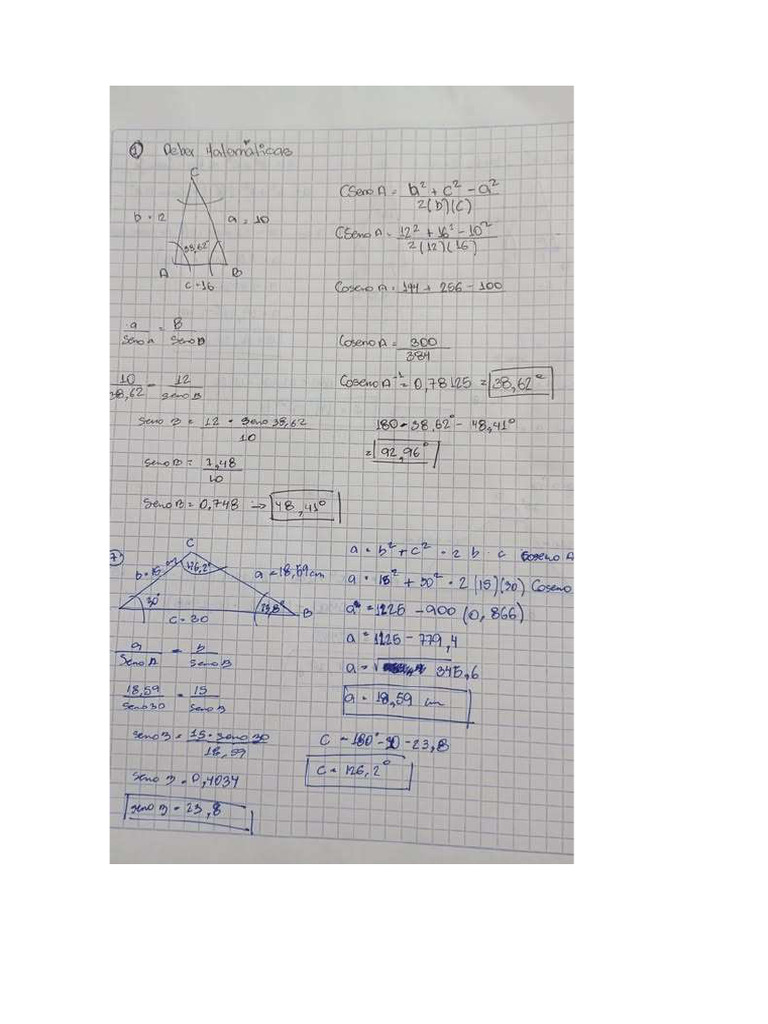 ① Deber Matemáticas
C
b = 2
a = 10
38,62°
A
B
c = 16
CSeno A = b² + c² - a²
2(b)(c)
CSeno A = 12² + 16² - 10²
2(12)(16)
Coseno A = 144 + 256 - 100
Coseno A = 300
384
Coseno A⁻¹ = 0,78125 = 38,62°
180 - 38,62° - 48,41°
= 92,96°
a = B
Seno A Seno B
10 = 12
38,62 seno B
Seno B = 12 · seno 38,62
10
Seno B = 7,48
10
Seno B = 0,748 -> 48,41°
7
C
b = 15
126,2°
a = 18,59 cm
30°
23,8°
B
c = 30
a = b² + c² - 2 b · c Coseno A
a = 15² + 30² - 2 (15)(30) Coseno
a² = 1125 - 900 (0,866)
a = 1125 - 779,4
a = √ 345,6
a = 18,59 cm
C = 180° - 30 - 23,8
C = 126,2°
a = b
Seno A Seno B
18,59 = 15
Seno 30 Seno B
Seno B = 15 · Seno 30
18,59
Seno B = 0,4034
Seno B = 23,8